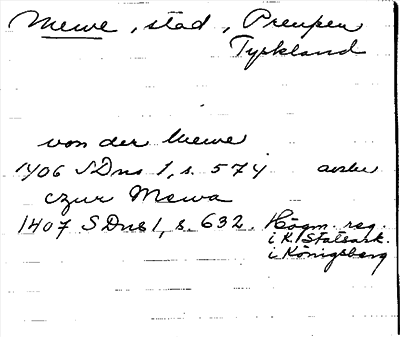 Mewe, stad, Preussen
Tyskland
von der Mewe
1406 SDns 1, s. 574 avskr
czur Mewa
1407 SDns 1, s. 632. Högm. reg.
i K. Statsark.
i Königsberg